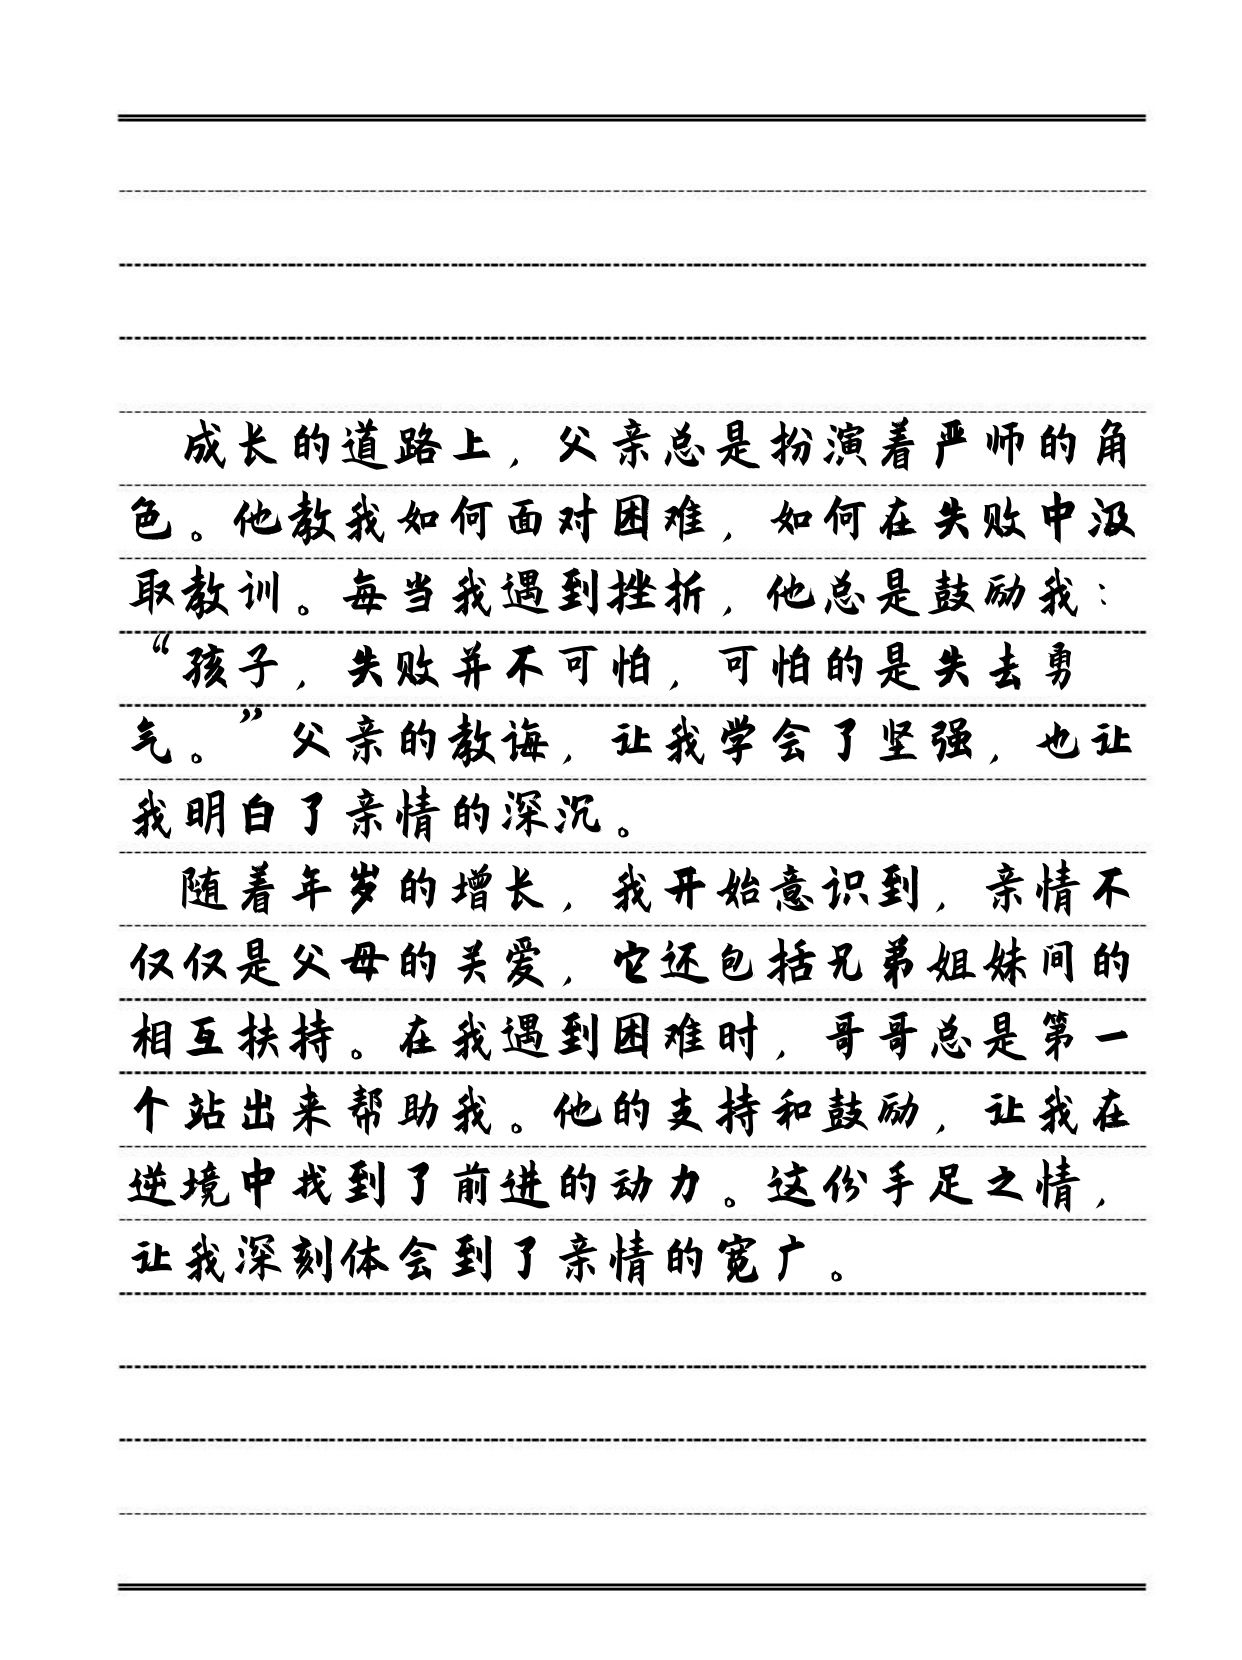 成长的道路上，父亲总是扮演着严师的角
色。他教我如何面对困难，如何在失败中汲
取教训。每当我遇到挫折，他总是鼓励我：
“孩子，失败并不可怕，可怕的是失去勇
气。”父亲的教诲，让我学会了坚强，也让
我明白了亲情的深沉。
随着年岁的增长，我开始意识到，亲情不
仅仅是父母的关爱，它还包括兄弟姐妹间的
相互扶持。在我遇到困难时，哥哥总是第一
个站出来帮助我。他的支持和鼓励，让我在
逆境中找到了前进的动力。这份手足之情，
让我深刻体会到了亲情的宽广。